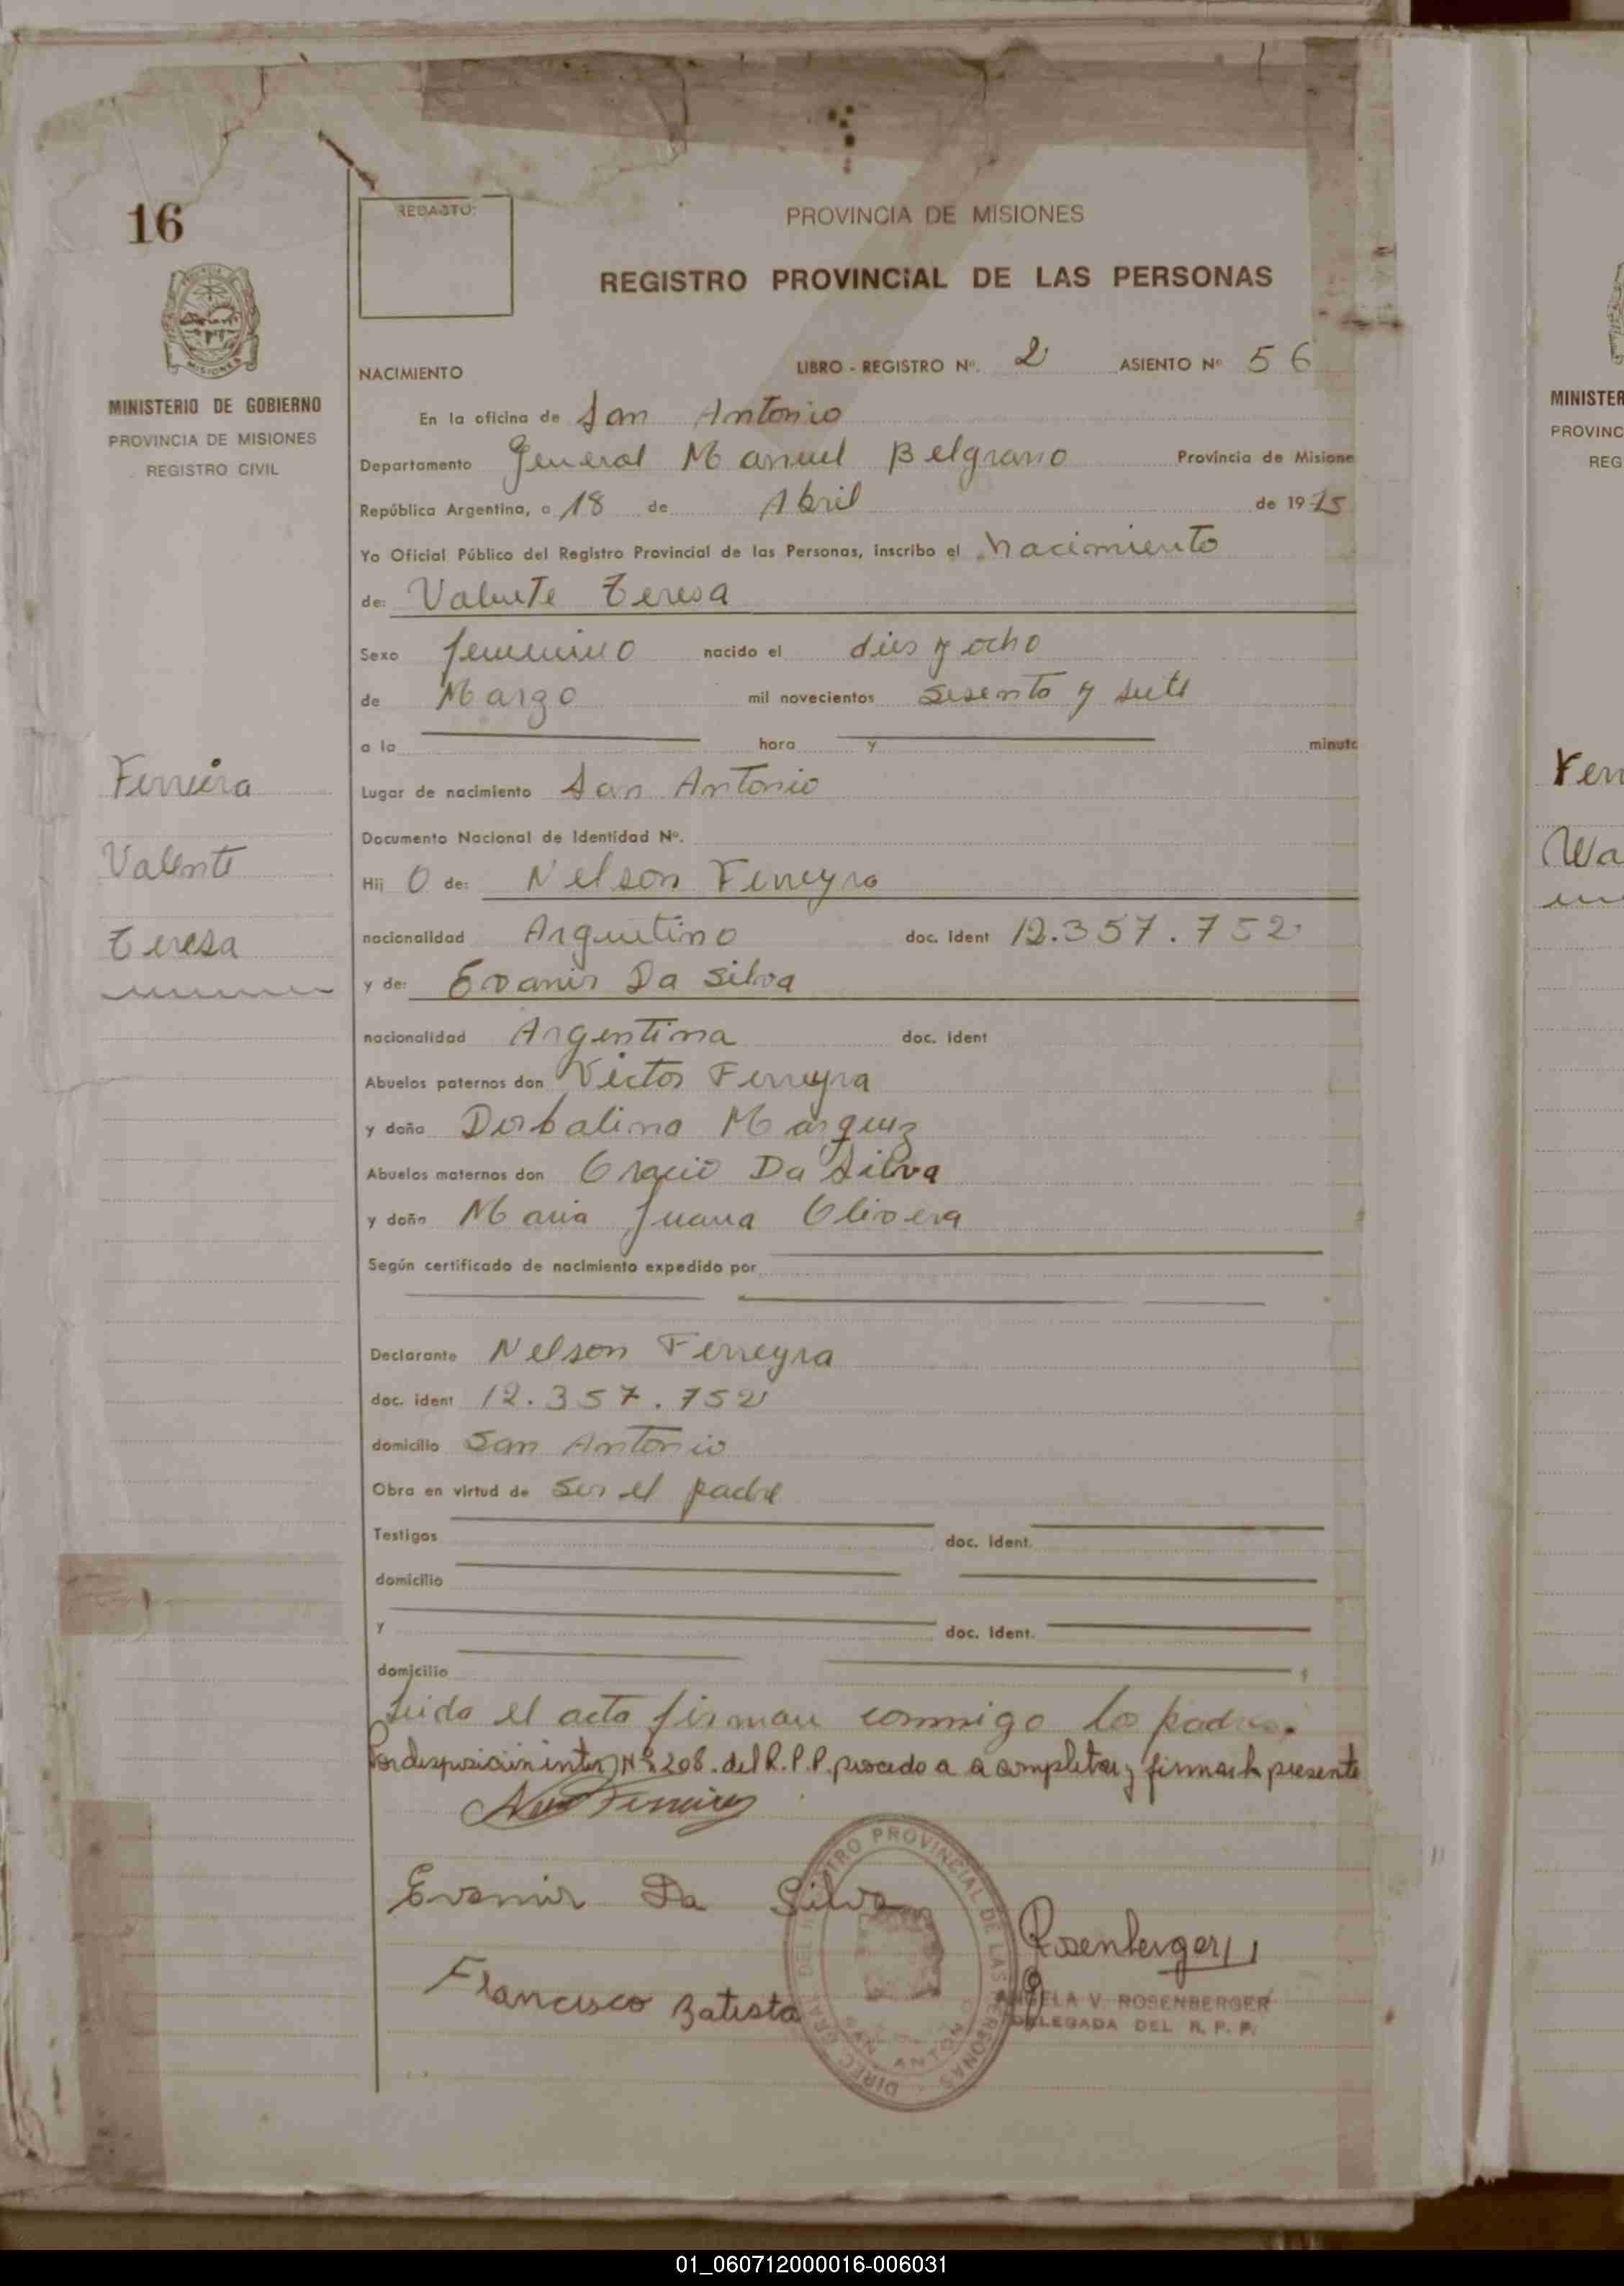 16
REDACTO:
PROVINCIA DE MISIONES
REGISTRO PROVINCIAL DE LAS PERSONAS
MISIONES
MINISTERIO DE GOBIERNO
PROVINCIA DE MISIONES
REGISTRO CIVIL
NACIMIENTO LIBRO - REGISTRO Nº. 2 ASIENTO Nº 56
En la oficina de San Antonio
Departamento General Manuel Belgrano Provincia de Misione
República Argentina, a 18 de Abril de 1975
Yo Oficial Público del Registro Provincial de las Personas, inscribo el Nacimiento
de: Valente Teresa
Sexo femenino nacido el dies y ocho
de Marzo mil novecientos sesenta y siete
a la hora y minuto
Ferreira
Valente
Teresa
Lugar de nacimiento San Antonio
Documento Nacional de Identidad Nº.
Hij O de: Nelson Ferreyra
nacionalidad Argentino doc. ident 12.357.752
y de: Evanir Da Silva
nacionalidad Argentina doc. ident
Abuelos paternos don Victor Ferreyra
y doña Dorbalina Marquez
Abuelos maternos don Da Silva
y doña Maria Juana Olivera
Según certificado de nacimiento expedido por
Declarante Nelson Ferreyra
doc. ident 12.357.752
domicilio San Antonio
Obra en virtud de Ser el padre
Testigos doc. ident.
domicilio
y doc. ident.
domicilio
Leido el acta firman conmigo lo padres.
Por disposición inter) Nº 208. del R.P.P. procedo a a completar y firmar la presente
Evanir Da Silva
Francisco Batista
Rosenberger
ANGELA V. ROSENBERGER
DELEGADA DEL R. P. P.
DIREC GRAL DEL REGISTRO PROVINCIAL DE LAS PERSONAS
SAN ANTONIO
MINISTER
PROVINC
REG
Ferr
Wa
01_060712000016-006031